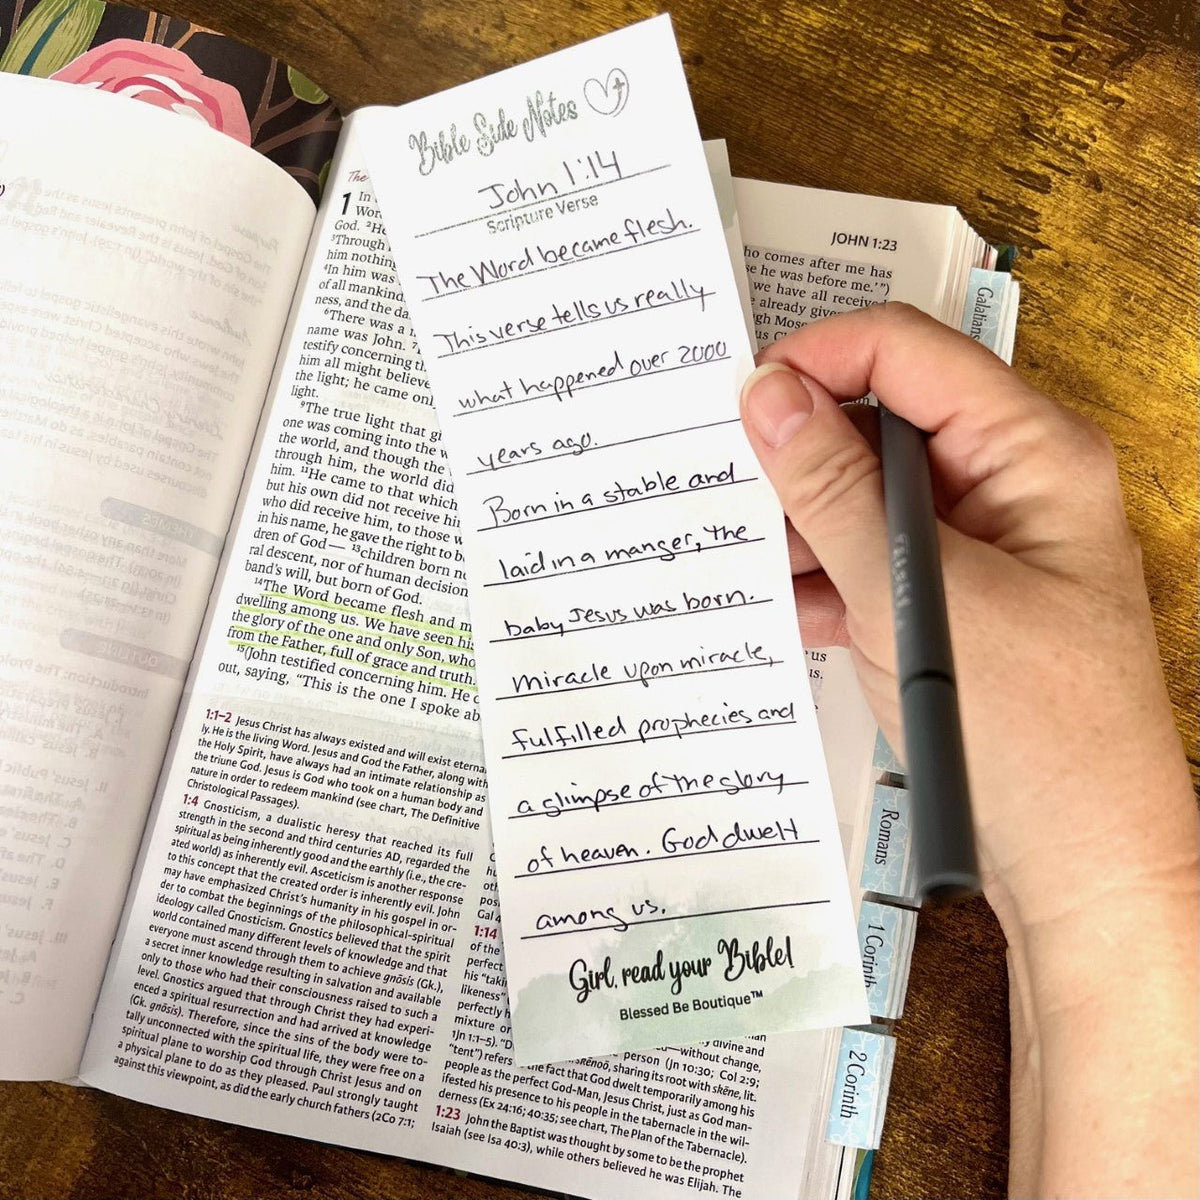 Bible Side Notes
John 1:14
Scripture Verse
The Word became flesh.
This verse tells us really
what happened over 2000
years ago.
Born in a stable and
laid in a manger, the
baby Jesus was born.
Miracle upon miracle,
fulfilled prophecies and
a glimpse of the glory
of heaven. God dwelt
among us.
Girl, read your Bible!
Blessed Be Boutique™
The
1 In
Wor
God. ²He
³Through
him nothing
⁴In him was
of all mankind.
ness, and the da
⁶There was a
name was John. ⁷
testify concerning th
him all might believe
the light; he came onl
light.
⁹The true light that gi
one was coming into the w
the world, and though the
through him, the world did
him. ¹¹He came to that which
but his own did not receive hi
who did receive him, to those w
in his name, he gave the right to b
dren of God— ¹³children born n
ral descent, nor of human decision
band's will, but born of God.
¹⁴The Word became flesh and m
dwelling among us. We have seen his
the glory of the one and only Son, who
from the Father, full of grace and truth.
¹⁵(John testified concerning him. He c
out, saying, "This is the one I spoke ab
1:1–2 Jesus Christ has always existed and will exist eternal
ly. He is the living Word. Jesus and God the Father, along with
the Holy Spirit, have always had an intimate relationship as
the triune God. Jesus is God who took on a human body and
nature in order to redeem mankind (see chart, The Definitive
Christological Passages).
1:4 Gnosticism, a dualistic heresy that reached its full
strength in the second and third centuries AD, regarded the
spiritual as being inherently good and the earthly (i.e., the cre-
ated world) as inherently evil. Asceticism is another response
to this concept that the created order is inherently evil. John
may have emphasized Christ's humanity in his gospel in or-
der to combat the beginnings of the philosophical–spiritual
ideology called Gnosticism. Gnostics believed that the spirit
world contained many different levels of knowledge and that
everyone must ascend through them to achieve gnōsis (Gk.),
a secret inner knowledge resulting in salvation and available
only to those who had their consciousness raised to such a
level. Gnostics argued that through Christ they had experi-
enced a spiritual resurrection and had arrived at knowledge
(Gk. gnōsis). Therefore, since the sins of the body were to-
tally unconnected with the spiritual life, they were free on a
spiritual plane to worship God through Christ Jesus and on
a physical plane to do as they pleased. Paul strongly taught
against this viewpoint, as did the early church fathers (2Co 7:1;
JOHN 1:23
ho comes after me has
se he was before me.'")
we have all received
already give
gh Mos
us C
us
us.
Gal 4
1:14
of the
perfect
his "taki
likeness"
perfectly h
mixture or
1Jn 1:1–5). "D
divine and
without change,
person (Jn 10:30; Col 2:9;
"tent") refers
skēnoō, sharing its root with skēne, lit.
the fact that God dwelt temporarily among his
people as the perfect God-Man, Jesus Christ, just as God man-
ifested his presence to his people in the tabernacle in the wil-
derness (Ex 24:16; 40:35; see chart, The Plan of the Tabernacle).
1:23 John the Baptist was thought by some to be the prophet
Isaiah (see Isa 40:3), while others believed he was Elijah. The
Galatians
Romans
1 Corinth
2 Corinth